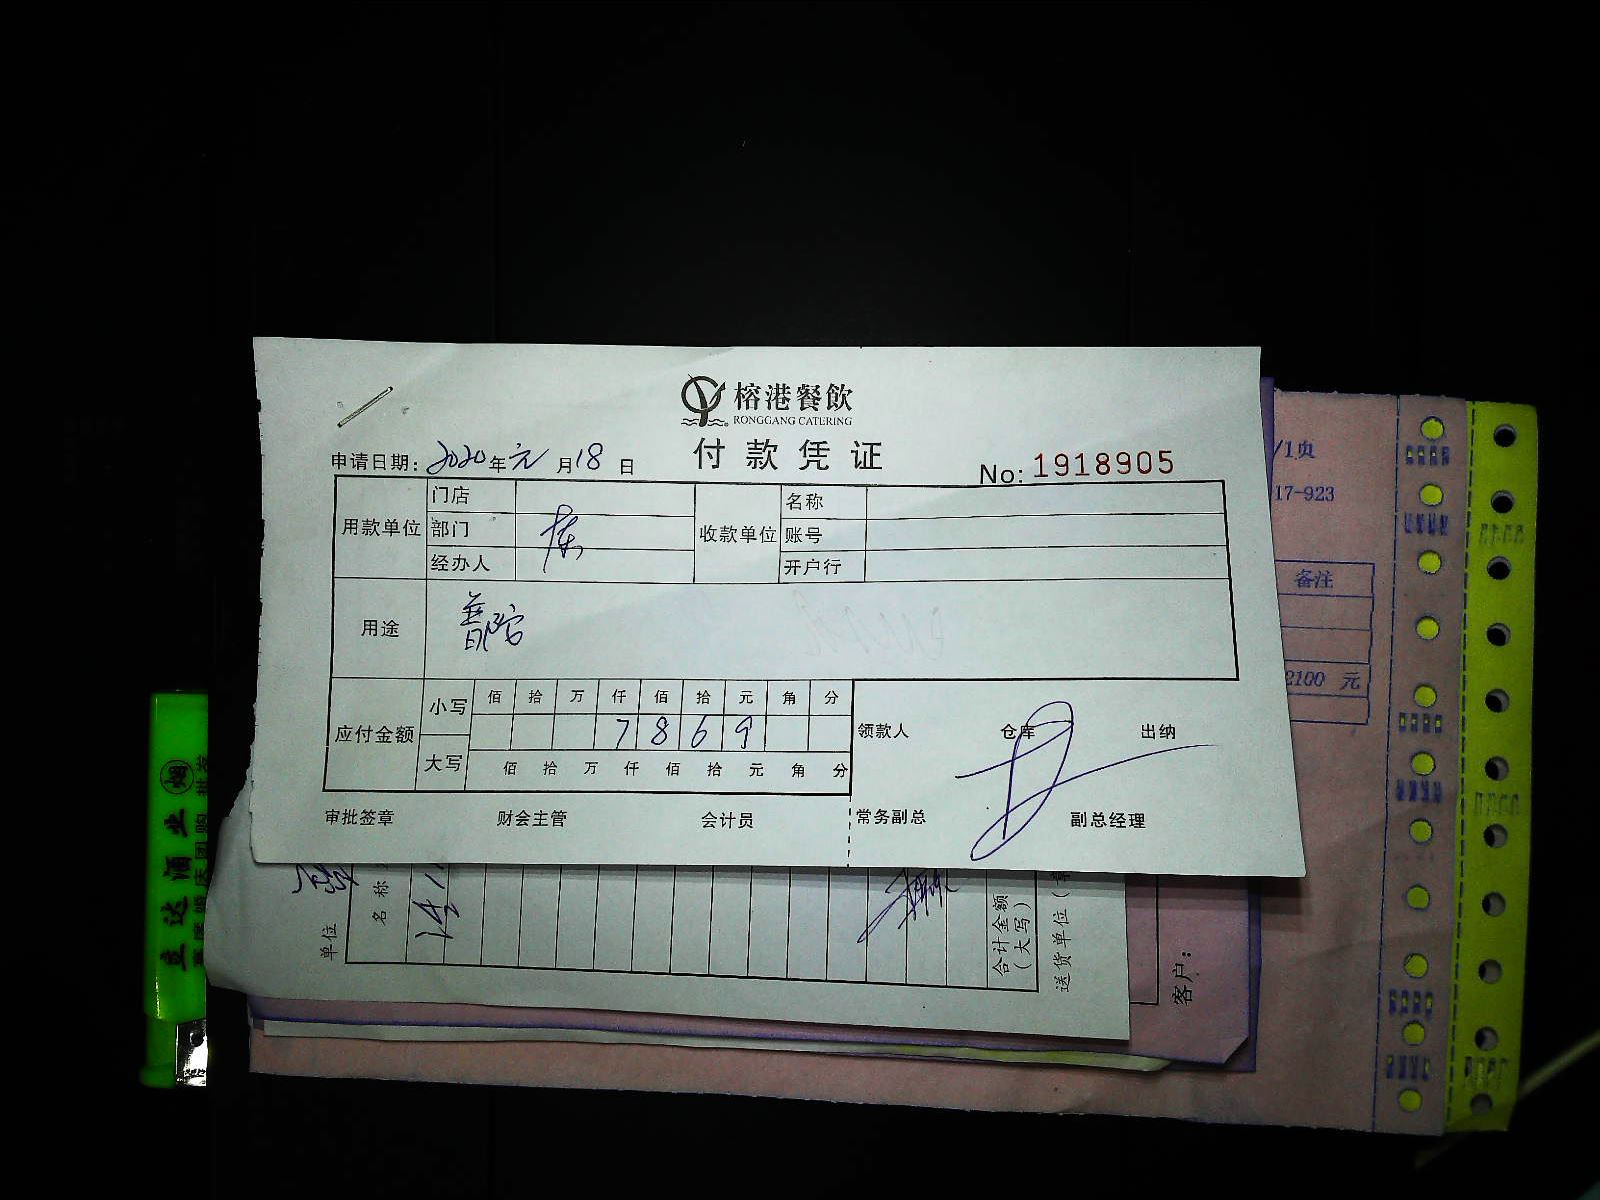 榕港餐飲
RONGGANG CATERING
付款凭证
申请日期: 2020年元月18日
No: 1918905
用款单位
门店
部门
经办人
收款单位
名称
账号
开户行
用途
普陀
应付金额
小写
佰 拾 万 仟 佰 拾 元 角 分
7 8 6 9
大写
佰 拾 万 仟 佰 拾 元 角 分
领款人 仓库 出纳
审批签章 财会主管 会计员 常务副总 副总经理
/1页
17-923
备注
2100 元
单位
名称
合计金额
(大写)
送货单位(章
客户: